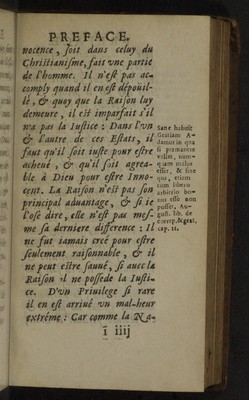 PREFACE.
nocence, soit dans celuy du
Christianisme, fait vne partie
de l'homme. Il n'est pas ac-
comply quand il en est dépoüil-
lé, & quoy que la Raison luy
demeure, il est imparfait s'il
n'a pas la Iustice : Dans l'vn
& l'autre de ces Estats, il
faut qu'il soit iuste pour estre
acheué, & qu'il soit agrea-
ble à Dieu pour estre Inno-
cent. La Raison n'est pas son
principal aduantage, & si ie
l'ose dire, elle n'est pas mes-
me sa derniere difference : Il
ne fut iamais creé pour estre
seulement raisonnable, & il
ne peut estre sauué, si auec la
Raison il ne possede la Iusti-
ce. D'vn Priuilege si rare
il en est arriué vn mal-heur
extréme : Car comme la Na-
ī iiij
Sane habuit
Gratiam A-
damus in qua
si permanere
vellet, num-
quam malus
esset, & sine
qua, etiam
cum libero
arbitrio bo-
nus esse non
posset. Au-
gust. lib. de
correp. & grat.
cap. 11.